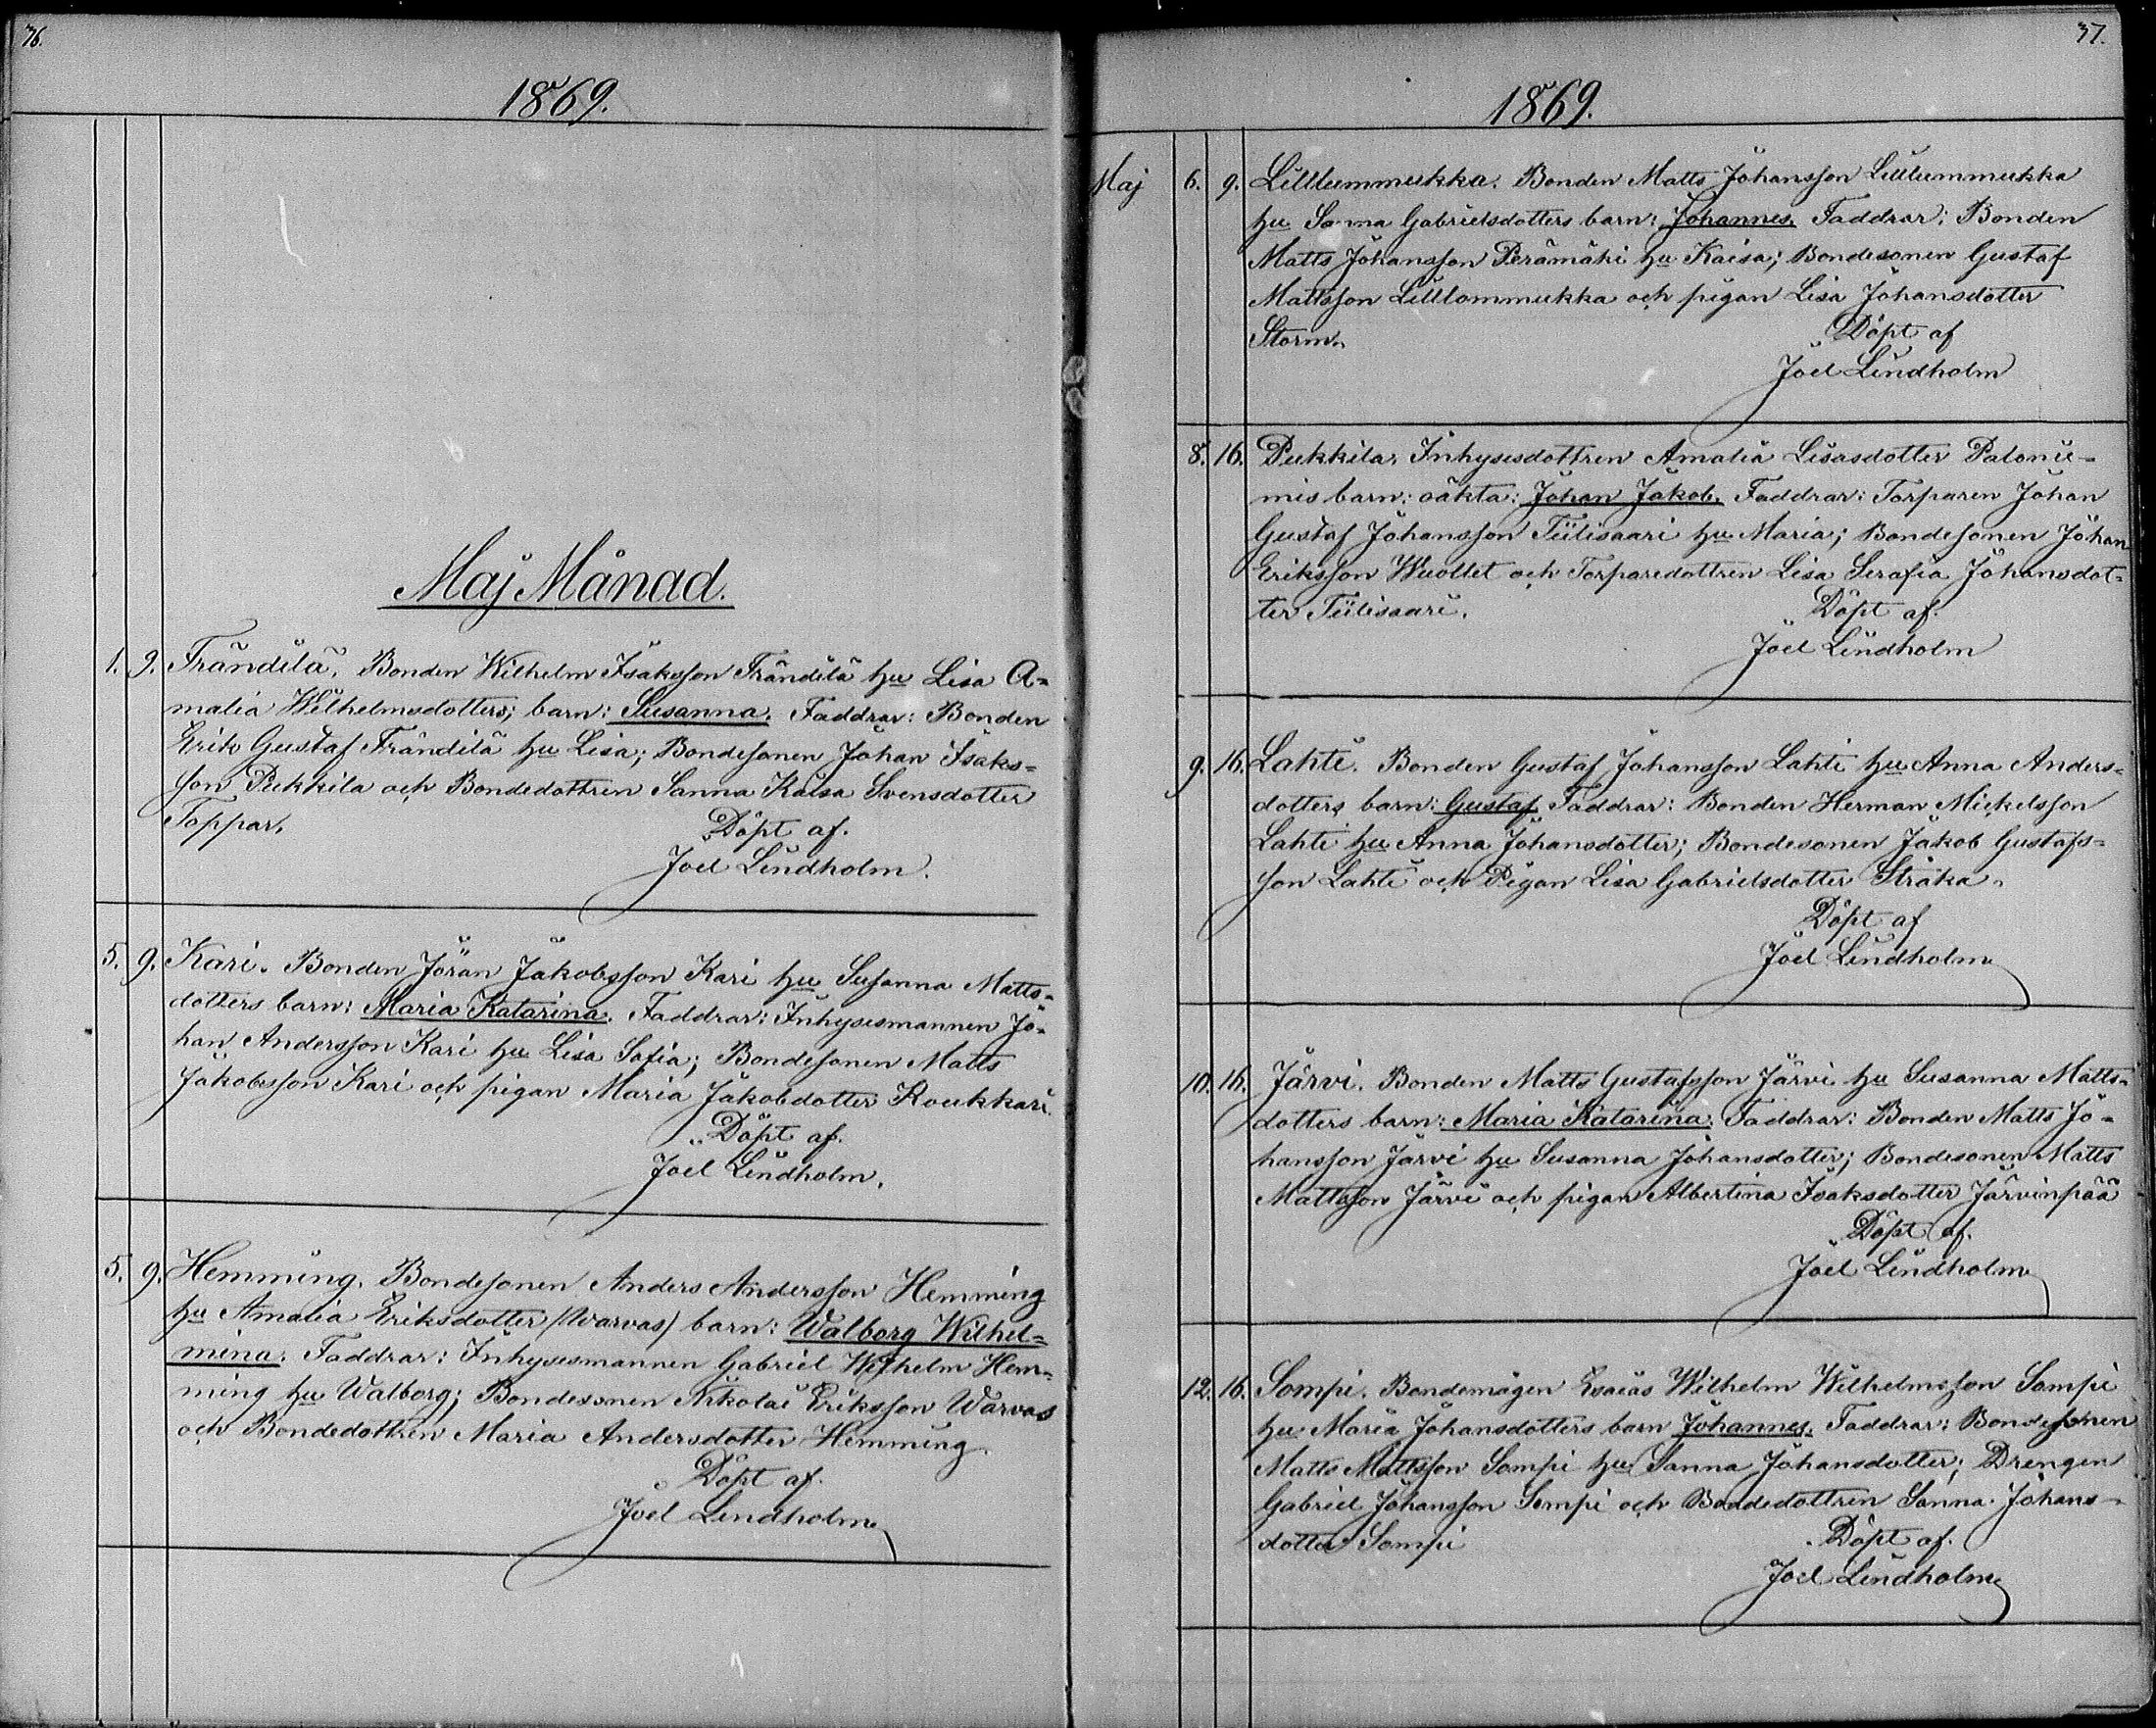 36.
1869.
Maj Månad.
1. 9. Frändilä. Bonden Wilhelm Isaksson Frändilä hu Lisa A=
malia Wilhelmsdotters; barn: Susanna. Faddrar: Bonden
Erik Gustaf Frändilä hu Lisa; Bondesonen Johan Isaks=
son Pukkila och Bondedottren Sanna Kaisa Svensdotter
Toppar.
Döpt af.
Joel Lindholm.
5. 9. Kari. Bonden Jöran Jakobsson Kari hu Susanna Matts=
dotters barn: Maria Katarina. Faddrar: Inhysesmannen Jo=
han Andersson Kari hu Lisa Sofia; Bondesonen Matts
Jakobsson Kari och pigan Maria Jakobdotter Roukkari.
Döpt af.
Joel Lindholm.
5. 9. Hemming. Bondesonen Anders Andersson Hemming
hu Amalia Eriksdotter (Warvas) barn: Walborg Wilhel=
mina. Faddrar: Inhysesmannen Gabriel Wilhelm Hem=
ming hu Walborg; Bondesonen Nikolai Eriksson Warvas
och Bondedottren Maria Andersdotter Hemming.
Döpt af.
Joel Lindholm
37.
1869.
Maj 6. 9. Lilllummukka. Bonden Matts Johansson Lilllummukka
hu Sanna Gabrielsdotters barn: Johannes. Faddrar: Bonden
Matts Johansson Perämäki hu Kaisa; Bondesonen Gustaf
Mattsson Lilllommukka och pigan Lisa Johansdotter
Storm.
Döpt af
Joel Lindholm
8. 16. Pukkila. Inhysesdottren Amalia Lisasdotter Palonie=
mis barn: oäkta: Johan Jakob. Faddrar: Torparen Johan
Gustaf Johansson Tiilisaari hu Maria; Bondesonen Johan
Eriksson Wuollet och Torparedottren Lisa Serafia Johansdot=
ter Tiilisaari.
Döpt af.
Joel Lindholm
9. 16. Lahti. Bonden Gustaf Johansson Lahti hu Anna Anders=
dotters barn: Gustaf Faddrar: Bonden Herman Mickelsson
Lahti hu Anna Johansdotter; Bondesonen Jakob Gustafs=
son Lahti och Pigan Lisa Gabrielsdotter Sträka.
Döpt af
Joel Lindholm
10. 16. Järvi. Bonden Matts Gustafsson Järvi hu Susanna Matts=
dotters barn: Maria Katarina. Faddrar: Bonden Matts Jo=
hansson Järvi hu Susanna Johansdotter; Bondesonen Matts
Mattsson Järvi och pigan Albertina Isaksdotter Järvinpää
Döpt af.
Joel Lindholm
12. 16. Sompi. Bondemågen Esaias Wilhelm Wilhelmsson Sompi
hu Maria Johansdotters barn Johannes. Faddrar: Bondesonen
Matts Mattsson Sompi hu Sanna Johansdotter; Drengen
Gabriel Johansson Sompi och Bondedottren Sanna Johans=
dotter Sompi
Döpt af.
Joel Lindholm